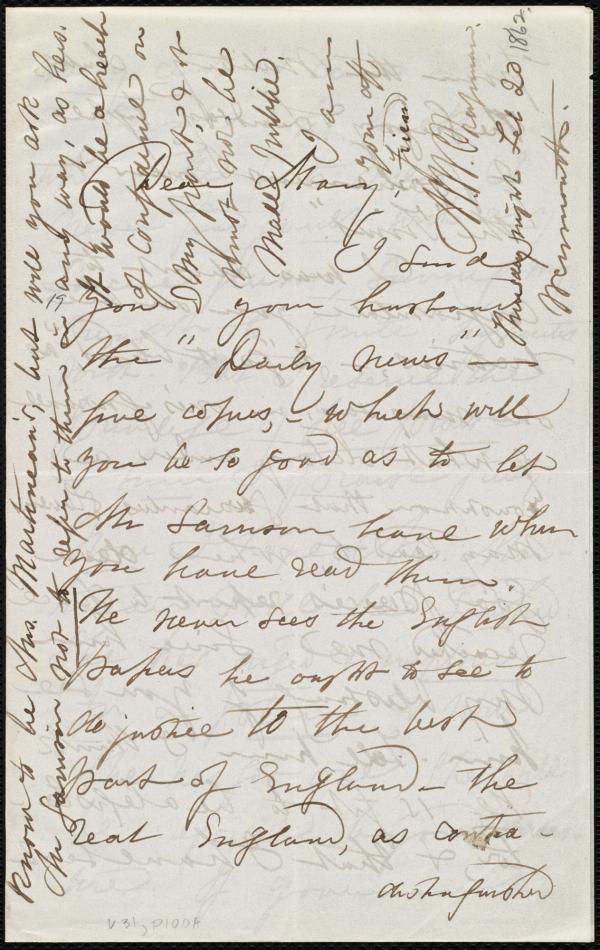 Dear Mary,
I send
you & your husband
the "Daily News" —
five copies, – which will
you be so good as to let
Mr Garrison have when
you have read them.
He never sees the English
papers he ought to see to
do justice to the best
part of England – the
real England, as contra-
distinguished
know to be Mrs. Martineau's, but will you ask
Mr Garrison not to refer to them in any way, as hers.
It would be a breach
of confidence on
my part, & it
must not be
made public.
I am
your aff
friend
M. W. Chapman.
Thursday night Feb 20 1862.
Weymouth.
19
V 31, P100A